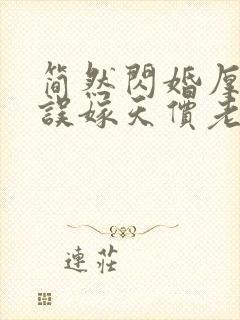 簡然閃婚厚
誤嫁天價老
連莊